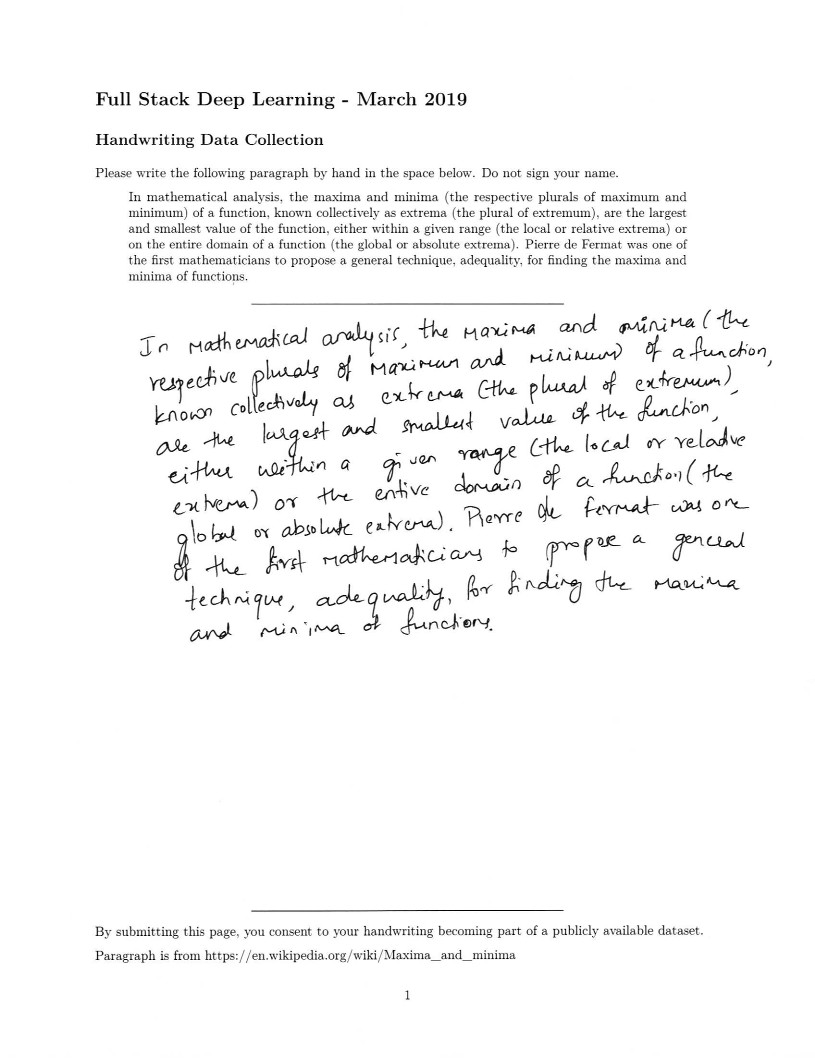 Full Stack Deep Learning - March 2019
Handwriting Data Collection
Please write the following paragraph by hand in the space below. Do not sign your name.
In mathematical analysis, the maxima and minima (the respective plurals of maximum and
minimum) of a function, known collectively as extrema (the plural of extremum), are the largest
and smallest value of the function, either within a given range (the local or relative extrema) or
on the entire domain of a function (the global or absolute extrema). Pierre de Fermat was one of
the first mathematicians to propose a general technique, adequality, for finding the maxima and
minima of functions.
In mathematical analysis, the maxima and minima (the
respective plurals of maximum and minimum) of a function,
known collectively as extrema (the plural of extremum),
are the largest and smallest value of the function,
either within a given range (the local or relative
extrema) or the entire domain of a function (the
global or absolute extrema). Pierre de fermat was one
of the first mathematicians to propose a general
technique, adequality, for finding the maxima
and minima of functions.
By submitting this page, you consent to your handwriting becoming part of a publicly available dataset.
Paragraph is from https://en.wikipedia.org/wiki/Maxima_and_minima
1